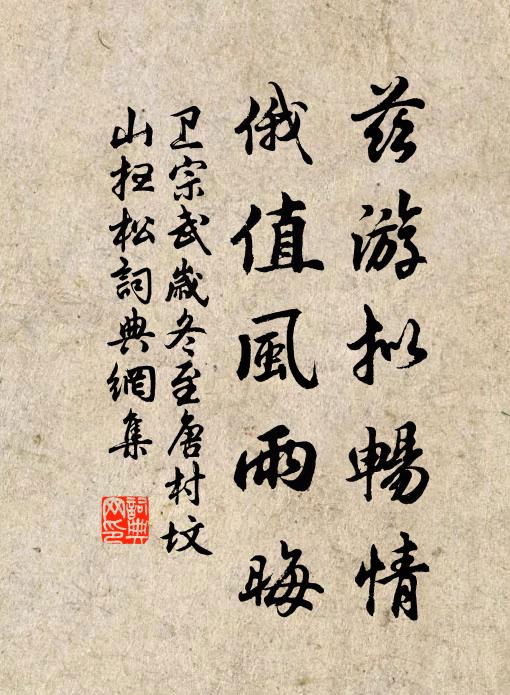 茲游拟暢情
俄值風雨晦
卫宗武歲冬至唐村坟
山扫松詞典網集
詞典网印